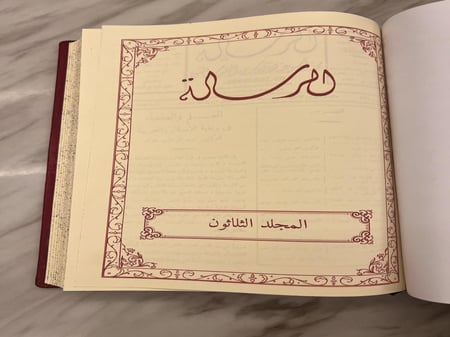 الرسالة
المجلد الثلاثون